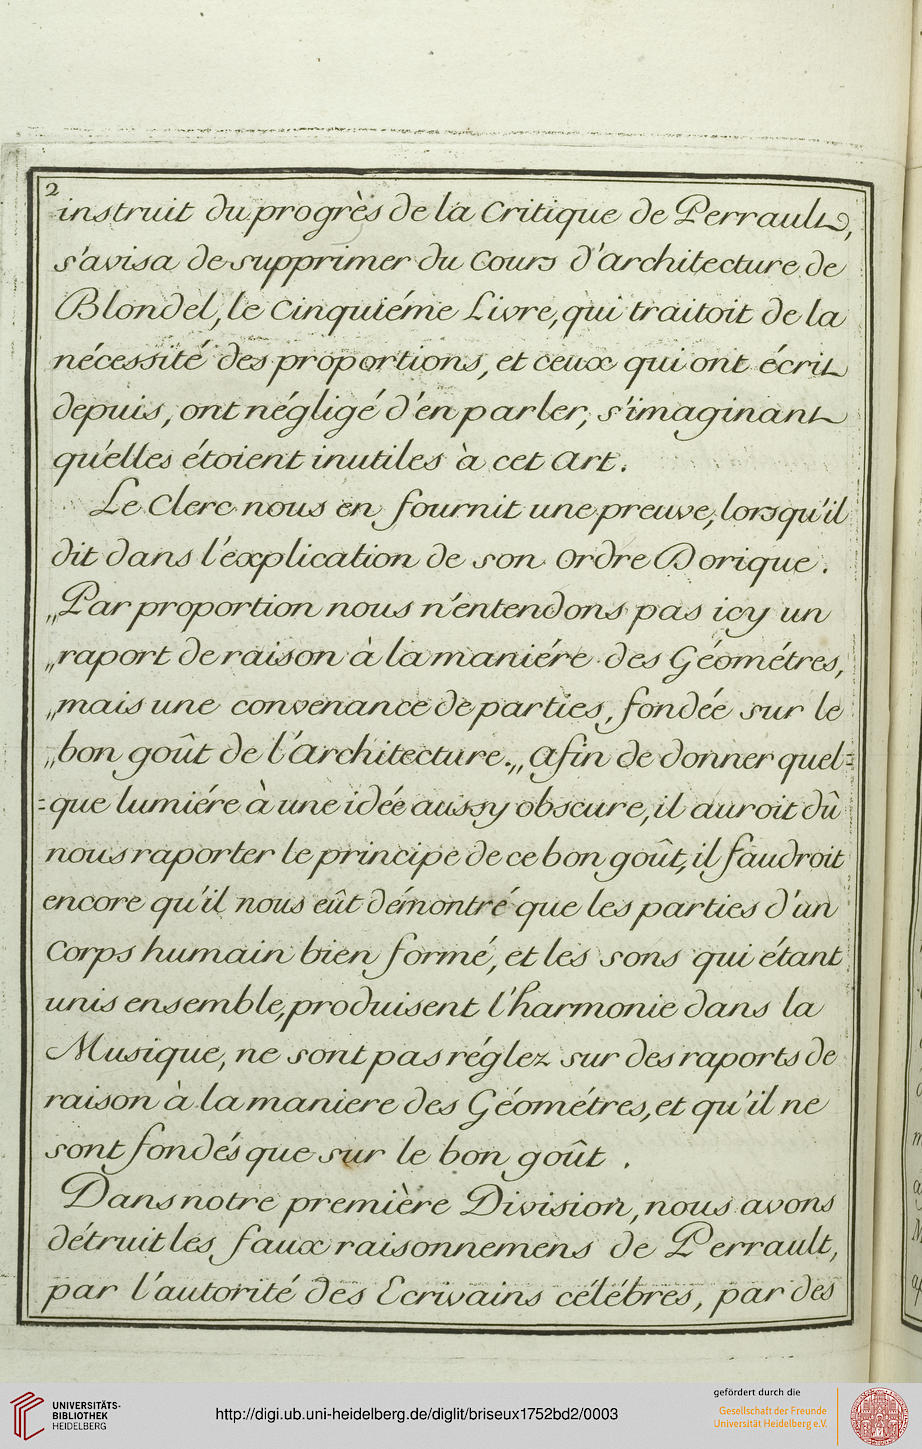 2
instruit du progrès de la Critique de Perrault,
s'avisa de supprimer du Cours d'Architecture de
Blondel, le Cinquiéme Livre, qui traitoit de la
nécessité des proportions, et ceux qui ont écrit
depuis, ont négligé d'en parler, s'imaginant
qu'elles étoient inutiles à cet Art.
Le Clerc nous en fournit une preuve, lorsqu'il
dit dans l'explication de son Ordre Dorique.
„Par proportion nous n'entendons pas icy un
„raport de raison à la maniére des Géométres,
„mais une convenance de parties, fondée sur le
„bon goût de l'Architecture.„ Afin de donner quel=
=que lumiére à une idée aussy obscure, il auroit dû
nous raporter le principe de ce bon goût, il faudroit
encore qu'il nous eût démontré que les parties d'un
Corps humain bien formé, et les sons qui étant
unis ensemble, produisent l'harmonie dans la
Musique, ne sont pas réglez sur des raports de
raison à la maniere des Géométres, et qu'il ne
sont fondés que sur le bon goût.
Dans notre première Division, nous avons
détruit les faux raisonnemens de Perrault,
par l'autorité des Ecrivains célébres, par des
UNIVERSITÄTS-
BIBLIOTHEK
HEIDELBERG
http://digi.ub.uni-heidelberg.de/diglit/briseux1752bd2/0003
gefördert durch die
Gesellschaft der Freunde
Universität Heidelberg e.V.